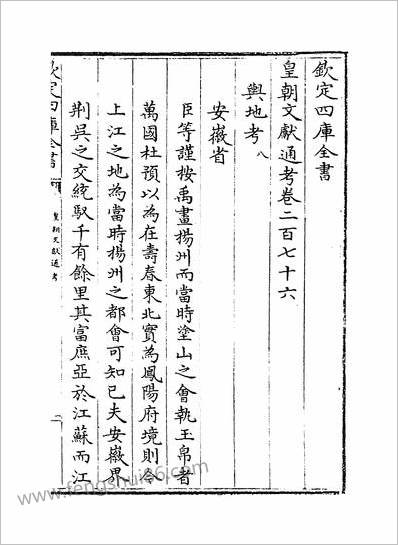 欽定四庫全書
皇朝文獻通考卷二百七十六
輿地考八
安徽省
臣等謹按禹畫揚州而當時塗山之會執玉帛者
萬國杜預以為在壽春東北實為鳳陽府境則今
上江之地為當時揚州之都會可知已夫安徽界
荆吳之交統馭千有餘里其富庶亞於江蘇而江
欽定四庫全書
皇朝文獻通考
www.fengshui86.com